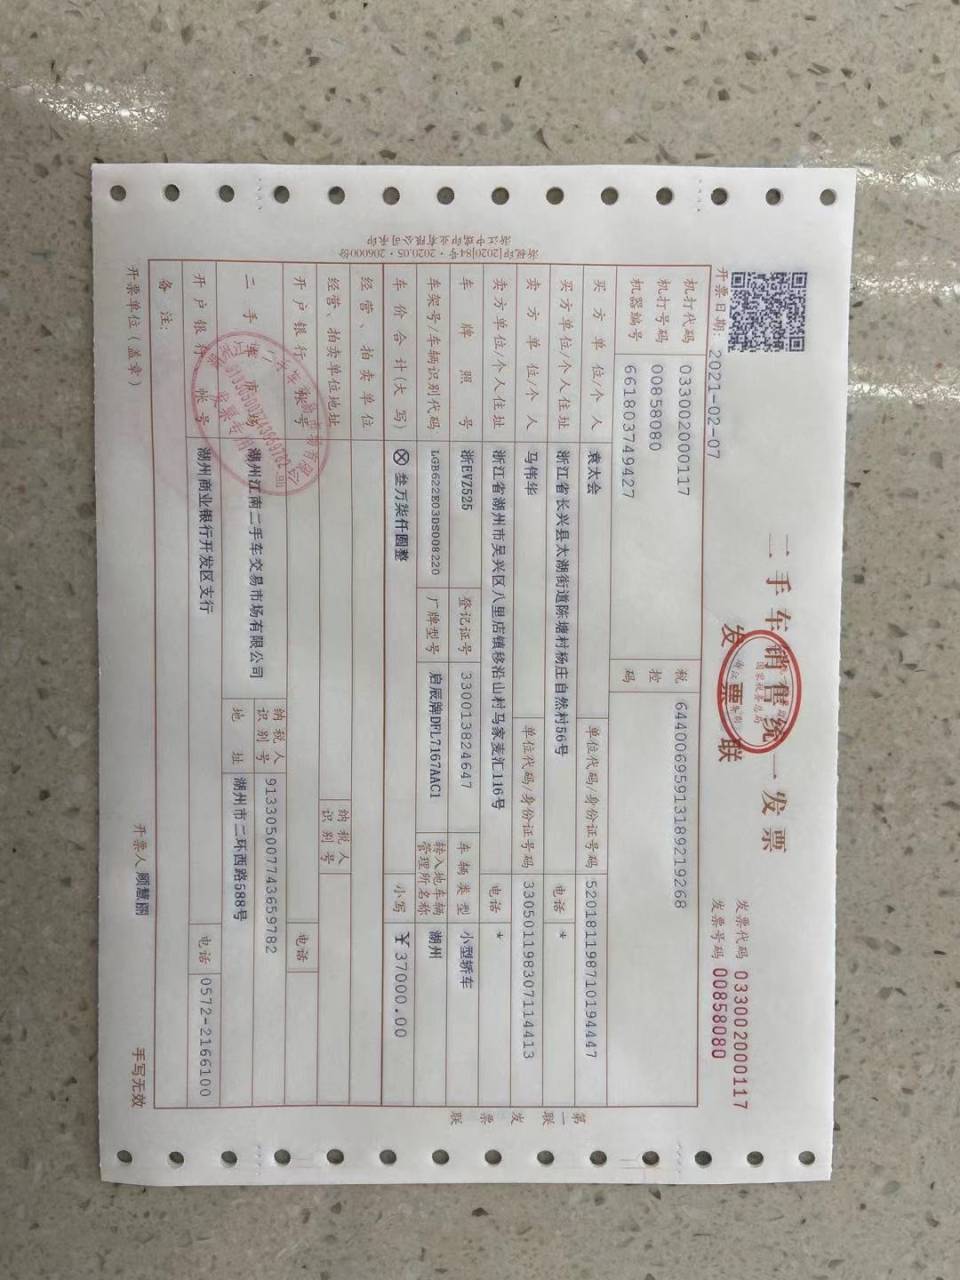 二手车销售统一发票
发票联
发票代码 033002000117
发票号码 00858080
开票日期: 2021-02-07
机打代码 033002000117
机打号码 00858080
机器编号 661803749427
税控码 64400695913189219268
买方单位/个人 袁太会 单位代码/身份证号码 520181198710194447
买方单位/个人住址 浙江省长兴县太湖街道陈塘村杨庄自然村56号 电话 *
卖方单位/个人 马伟华 单位代码/身份证号码 330501198307114413
卖方单位/个人住址 浙江省湖州市吴兴区八里店镇移沿山村马家麦汇116号 电话 *
车牌照号 浙EVZ525 登记证号 330013824647 车辆类型 小型轿车
车架号/车辆识别代码 LGB622E03DS008220 厂牌型号 启辰牌DFL7167AAC1 转入地车辆管理所名称 湖州
车价合计(大写) ⊗ 叁万柒仟圆整 小写 ¥37000.00
经营、拍卖单位
经营、拍卖单位地址 纳税人识别号
开户银行、帐号 电话
二手车市场 湖州江南二手车交易市场有限公司 纳税人识别号 913305007743659782
地址 湖州市二环西路588号
开户银行、帐号 湖州商业银行开发区支行 电话 0572-2166100
备注:
开票单位(盖章) 开票人 顾慧丽 手写无效
第一联 发票联